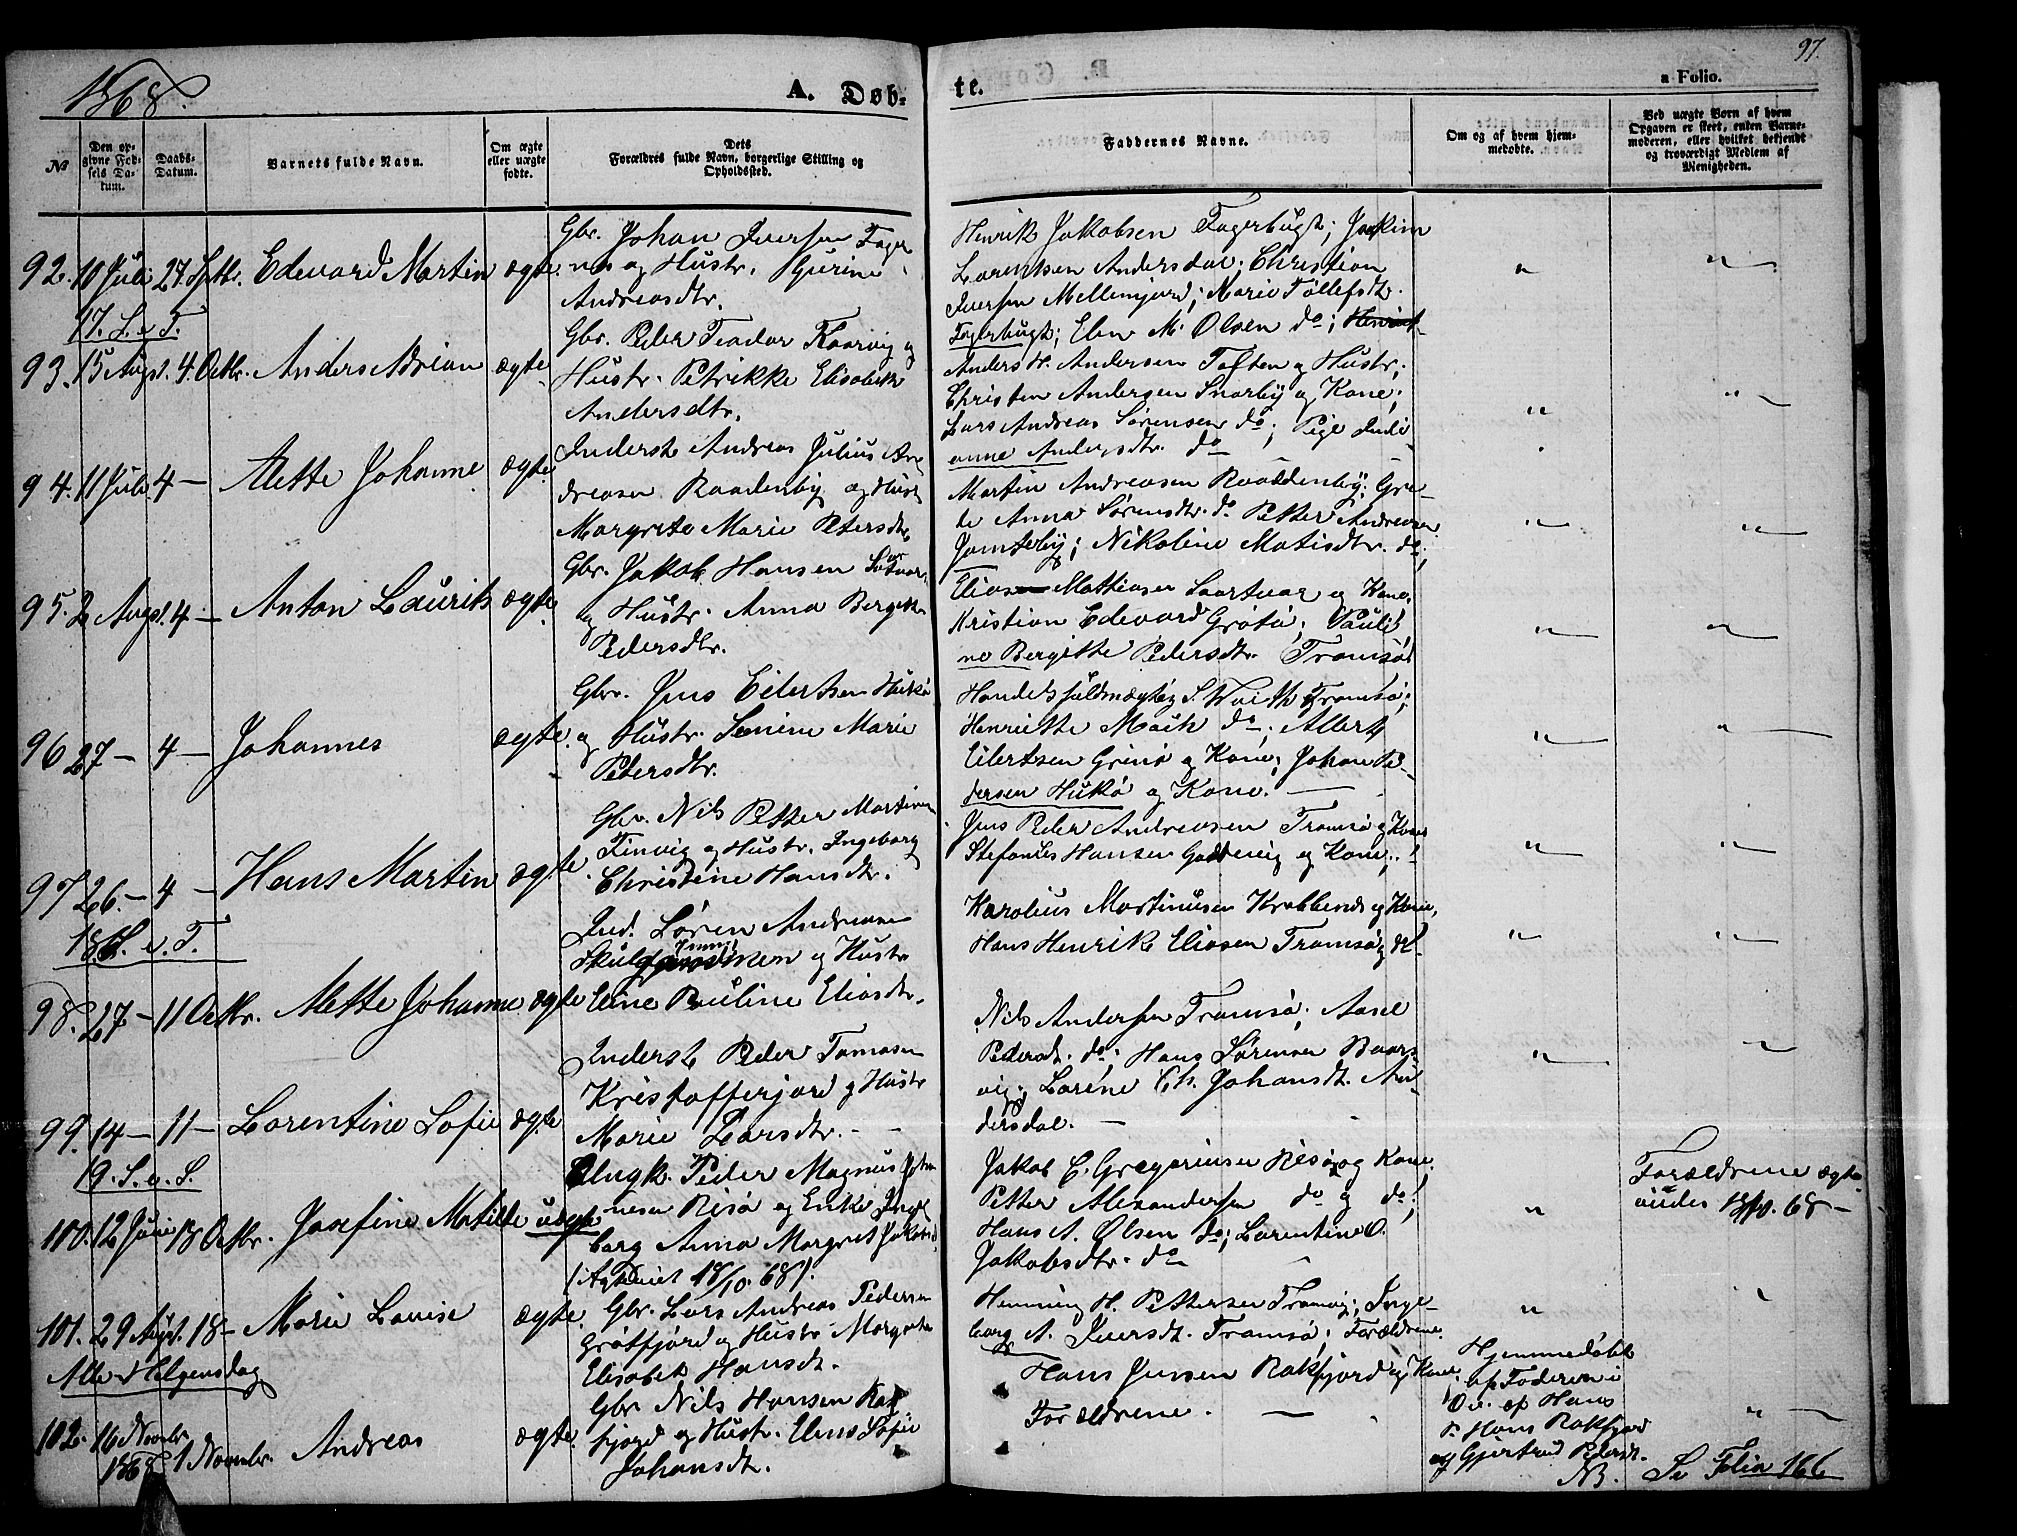 1868.
A. Døb-
te.
97.
a Folio.
No
Den op-
givne Fød-
sels Da-
tum.
Daabs-
Datum.
Barnets fulde Navn.
Om ægte
eller uægte
fødte.
Dets
Forældres fulde Navn, borgerlige Stilling og
Opholdssted.
Faddernes Navne.
Om og af hvem hjem-
medøbte.
Ved uægte Børn af hvem
Opgaven er skeet, enten Barne-
moderen, eller hvilket bekjendt
og troværdigt Medlem af
Menigheden.
92. 10 Juli 27. Septbr. Edevard Martin ægte.
Gbr. Johan Iversen Fager-
nes og Hustr. Gurine
Andreasdtr.
Henrik Jakobsen Fagerbugt; Joakim
Lorentsen Andersdal; Christian
Iversen Mellemjord; Marie Tollefsdtr.
Fagerbugt; Elen M. Olsen do;
17. S. e. T.
93. 15 Augst. 4. Octbr. Anders Adrian ægte
Gbr. Peder Teodor Kaarvig og
Hustr. Petrikke Elisabeth
Andersdtr.
Anders H. Andersen Toften og Hustr;
Christen Andersen Snarby og Kone;
Lars Andreas Sørensen do; Pige Indi-
anne Andersdtr. do
94. 11 Juli 4 — Mette Johanne ægte
Inderst Andreas Julius An-
dreasen Raadenby og Hust
Margrete Marie Petersdtr
Martin Andreasen Raaddenby; Gre-
te Anna Sørensdtr. do Petter Andreasen
Jamteby; Nikoline Matisdtr. do;
95. 2 Augst. 4 — Anton Laurits ægte
Gbr. Jakob Hansen
og Hustr. Anna Bergitte
Pedersdtr.
Elias Mathiasen Saartvar og Kone,
Kristian Edevard Grøtø; Pauli-
ne Bergitte Pedersdtr. Tromsø
96 27 — 4 — Johannes ægte.
Gbr. Jens Eilertsen Hukø
og Hustr. Senine Marie
Petersdtr.
Handelsfuldmægtig S. Tromsø;
Henriette Mack do; Albert
Eilertsen Grinø og Kone; Johan Pe-
dersen Hukø og Kone. —
97 26. — 4 — Hans Martin ægte
Gbr. Nils Petter Martinsen
Finvig og Hustr. Ingeborg
Christine Hansdtr.
Jens Peder Andreasen Tromsø og Kone
Stefanus Hansen og Kone;
Karolius Martinusen Krabbenes og Kone,
Hans Henrik Eliasen Tromsø og do!
18. S. e. T.
98. 27 — 11 Octbr. Mette Johanne ægte
Ind. Søren Andreasen
og Hustr
Eline Pauline Eliasdtr.
Nils Andersen Tromsø; Aasel
Pedersdt. do; Hans Sørensen Baars-
vig; Lorine Ch. Johansdt. An-
dersdal. —
99. 14 — 11 — Lorentine Sofie ægte
Inderst Peder Tomasen
Kristofferjord og Hustr
Marie Larsdtr. —
19. S. e. T.
100. 12 Juni 18 Octbr. Josefine Matilde uægte
Ungk. Peder Magnus Johan-
nesen Risø og Enke Inge-
borg Anna Margret Jakobsd.
(Ægteviet 18/10. 68).
Jakob E. Gregoriusen Risø og Kone.
Petter Alexandersen do og do!
Hans A. Olsen do; Lorentine O.
Jakobsdtr. do
Forældrene ægte-
viedes 18/10. 68 —
101. 29 Augst. 18 — Marie Louise ægte
Gbr. Lars Andreas Pedersen
Grøtfjord og Hustr. Margrete
Elisabet Hansdt.
Henning H. Pettersen Tromvig; Inge-
borg A. Iversdt. Tromsø; Forældrene.
Alle Helgensdag
102. 16 Novbr. 1868 1 Novembr. Andreas ægte
Gbr. Nils Hansen Rak-
fjord og Hustr. Elens Sofie
Johansdt.
Hans Jensen Rakfjord og Kone
Forældrene. —
Hjemmedøbt
af Faderen i
Ov. af Hans
P. Hans Rakfjord
og Gjertrud Pedersdt.
NB. Se Folio 166